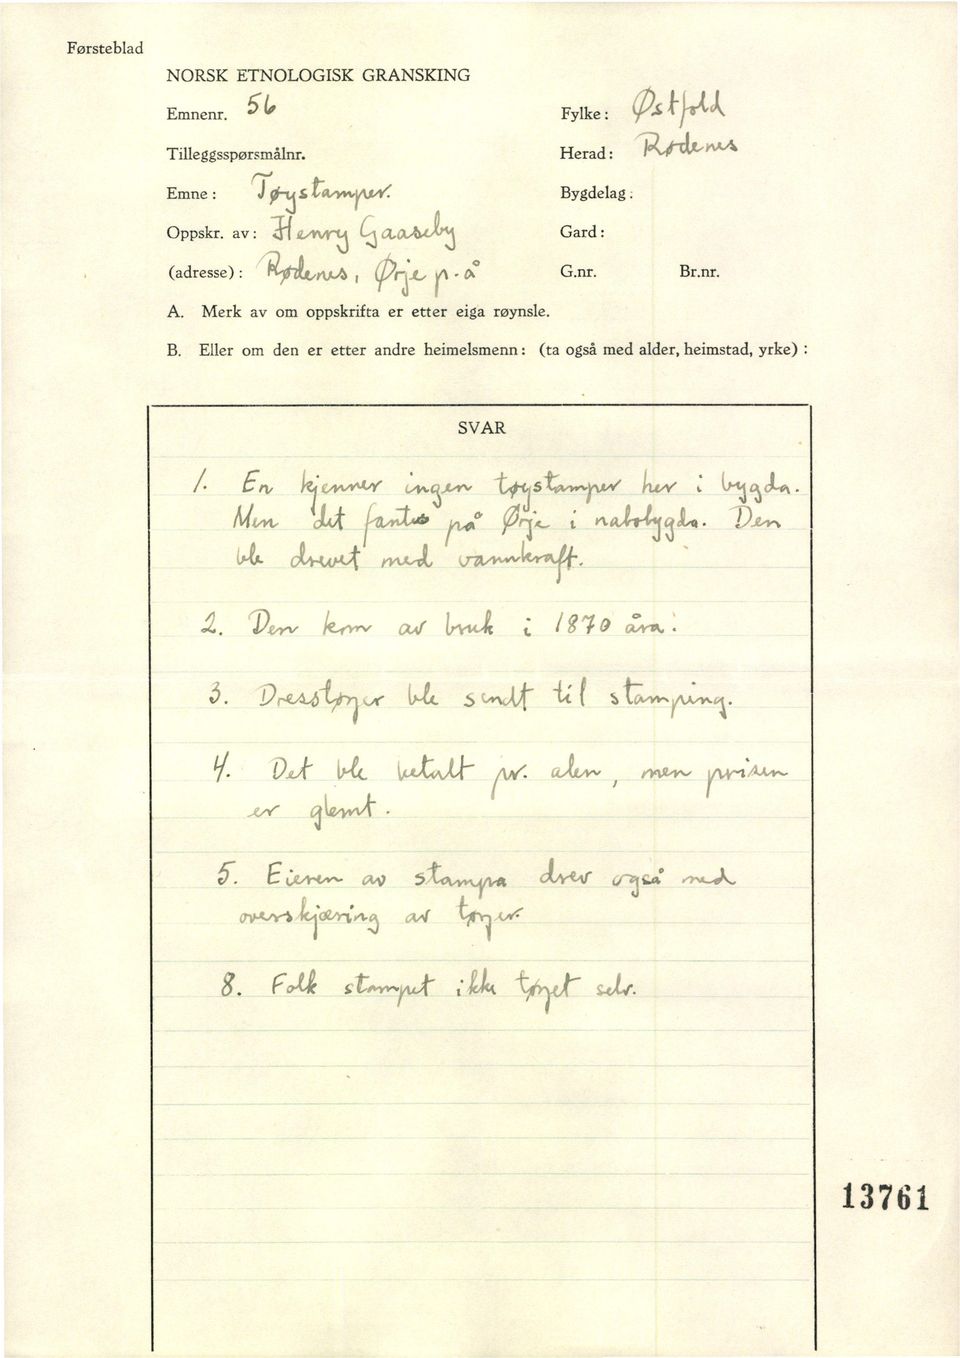 Førsteblad
NORSK ETNOLOGISK GRANSKING
Emnenr. 56
Fylke: Østfold
Tilleggsspørsmålnr.
Herad: Rødenes
Emne: Tøystamper.
Bygdelag:
Oppskr. av: Henry Gaaseby
Gard:
(adresse): Rødenes, Ørje p.å
G.nr. Br.nr.
A. Merk av om oppskrifta er etter eiga røynsle.
B. Eller om den er etter andre heimelsmenn: (ta også med alder, heimstad, yrke):
SVAR
1. En kjenner ingen tøystamper her i bygda.
Men det fantes på Ørje i nabobygda. Den
ble drevet med vannkraft.
2. Den kom av bruk i 1870 åra.
3. Dresstøyer ble sendt til stamping.
4. Det ble betalt pr. alen, men prisen
er glemt.
5. Eieren av stampa drev også med
overskjæring av tøyer.
8. Folk stampet ikke tøyet selv.
13761